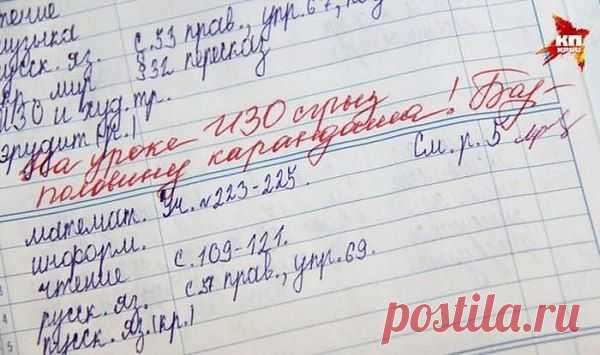 чтение
музыка
русск. яз. с. 53 прав., упр. 67,
окр. мир §32 пересказ
ИЗО и худ. тр.
эрудит (кр.)
На уроке ИЗО сгрыз
половину карандаша! Бар-
математ. Уч. №223-225. См. р. 5
информ.
чтение с. 109-121.
русск. яз. с. 57 прав., упр. 69.
русск. яз. (кр.)
3
4
5
КП
KP.RU
postila.ru